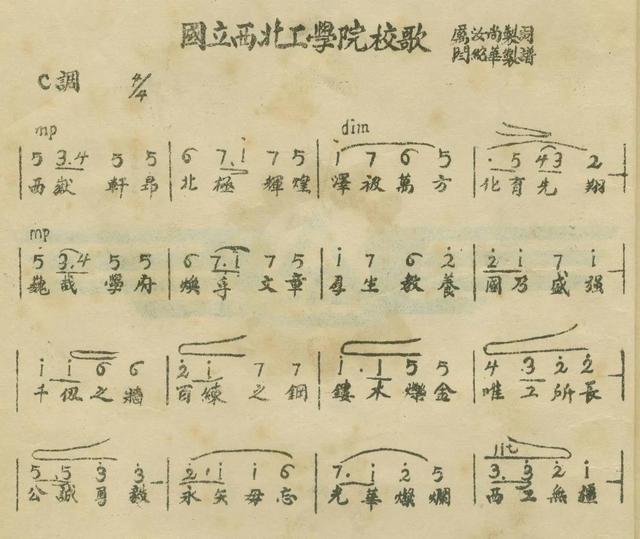 國立西北工學院校歌
厲汝尚製詞
閆紹華製譜
C調 4/4
mp dim
5 3.4 5 5 6 7.i 7 5 i 7 6 5 . 5 4 3 2
西嶽軒昂 北極輝煌 澤被萬方 化育先翔
mp
5 3.4 5 5 6 7.i 7 5 i 7 6 2 2 i 7 i
巍哉學府 煥乎文章 厚生教養 國乃盛强
i i 6 6 2 i 7 7 i . i 5 5 4 .3 2 2
千仭之牆 百練之鋼 鏤木爍金 唯工所長
lit
5 .5 3 3 2 . i i 6 7. i 2 5 3. 3 2 i
公誠勇毅 永矢毋忘 光華燦爛 西工無疆